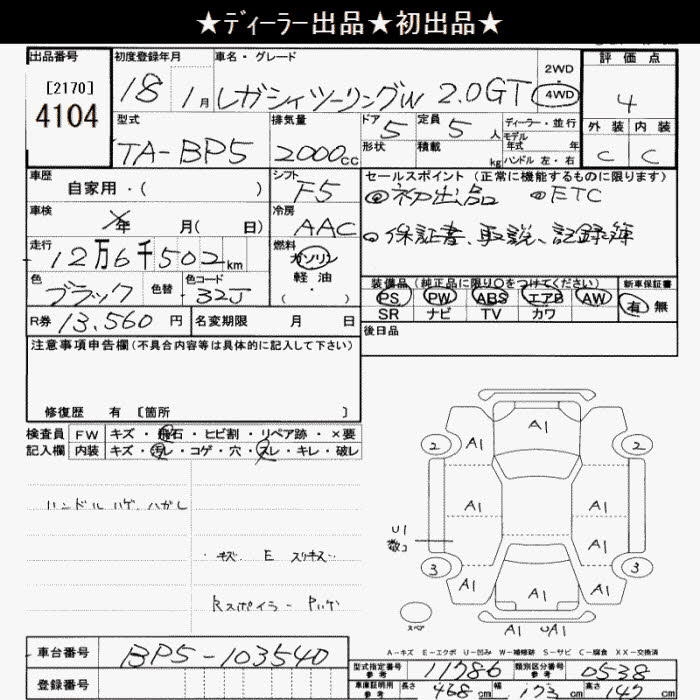 ★ディーラー出品★初出品★
出品番号
[2170]
4104
初度登録年月
18 1月
車名・グレード
レガシィツーリングW 2.0GT
2WD
4WD
評価点
4
外装 内装
C C
型式
TA-BP5
排気量
2000cc
ドア
5
形状
定員
5人
積載
kg
ディーラー・並行
モデル
年式 年
ハンドル 左・右
車歴
自家用・( )
シフト
F5
セールスポイント (正常に機能するものに限ります)
◎初出品 ◎ETC
◎保証書、取説、記録簿
車検
年 月( 日)
冷房
AAC
走行
12万6千502km
燃料
ガソリン
軽油
( ・ )
色
ブラック
色替
色コード
32J
装備品 (純正品に限り○をつけてください)
PS PW ABS エアB AW
SR ナビ TV カワ
新車保証書
有 無
R券 13,560 円
名変期限 月 日
後日品
注意事項申告欄 (不具合内容等は具体的に記入して下さい)
修復歴 有 [箇所 ]
検査員 FW キズ・飛石・ヒビ割・リペア跡・×要
記入欄 内装 キズ・汚レ・コゲ・穴・スレ・キレ・破レ
ハンドル ハゲ、ハガレ
キズ E スリキズ
Rスポイラー Pハゲ
A1
2 A1 A1 2
A1 A1
U1
3 A1 A1 A1 3
スペア
A1 UA1
A-キズ E-エクボ U-凹み W-補修跡 S-サビ C-腐食 XX-交換済
車台番号 BP5-103540
登録番号
型式指定番号
参考
11786
類別区分番号
参考
0538
車庫証明用
参考
長さ 468cm 幅 173cm 高さ 147cm